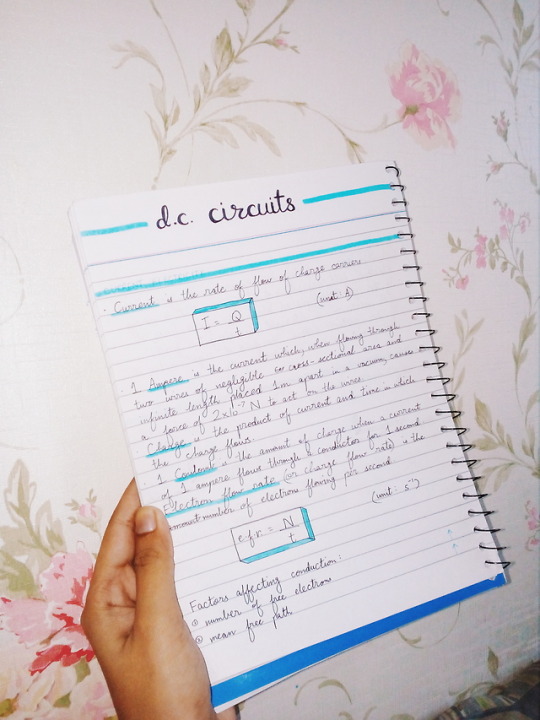 d.c. circuits
· Current is the rate of flow of charge carriers.
I = Q
t
(unit: A)
· 1 Ampere is the current which, when flowing through
two wires of negligible cross-sectional area and
infinite length, placed 1m apart in a vacuum, causes
a force of 2x10⁻⁷ N to act on the wires.
Charge is the product of current and time in which
the charge flows.
· 1 Coulomb is the amount of charge when a current
of 1 ampere flows through a conductor for 1 second.
Electron flow rate (or charge flow rate) is the
number of electrons flowing per second.
e.f.r. = N
t
(unit: s⁻¹)
Factors affecting conduction:
① number of free electrons
② mean free path